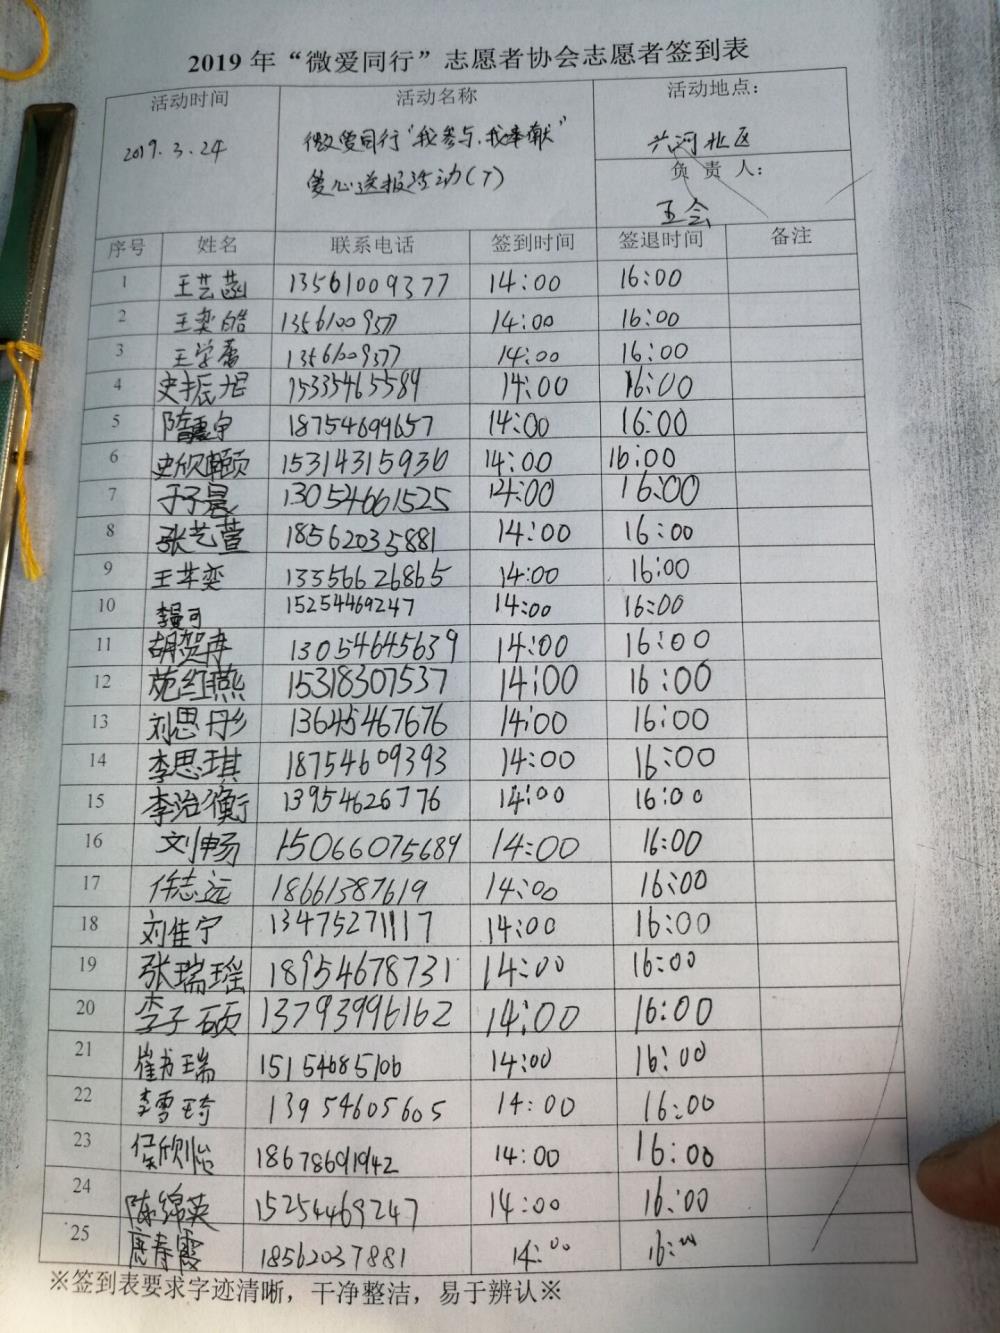 2019 年“微爱同行”志愿者协会志愿者签到表
活动时间 活动名称 活动地点：
2019.3.24 微爱同行"我参与、我奉献" 兴河北区
爱心送报活动(下) 负 责 人：
王会
序号 姓名 联系电话 签到时间 签退时间 备注
1 王艺菡 13561009377 14:00 16:00
2 王奕皓 13561009377 14:00 16:00
3 王学蕾 13561009377 14:00 16:00
4 史振旭 15335465589 14:00 16:00
5 隋惠宇 18754699657 14:00 16:00
6 史欣颐 15314315936 14:00 16:00
7 于子晨 13054661525 14:00 16:00
8 张艺萱 18562035881 14:00 16:00
9 王芊奕 13356626865 14:00 16:00
10 李曼可 15254469247 14:00 16:00
11 胡贺冉 13054645639 14:00 16:00
12 苑红燕 15318307537 14:00 16:00
13 刘思彤 13645467676 14:00 16:00
14 李思琪 18754609393 14:00 16:00
15 李治衡 13954626776 14:00 16:00
16 刘畅 15066075689 14:00 16:00
17 任志远 18661387619 14:00 16:00
18 刘佳宁 13475271117 14:00 16:00
19 张瑞瑶 18954678731 14:00 16:00
20 李子硕 13793996162 14:00 16:00
21 崔书瑞 15154685106 14:00 16:00
22 李雪琦 13954605605 14:00 16:00
23 侯欣怡 18678691942 14:00 16:00
24 陈绵英 15254469247 14:00 16:00
25 唐春霞 18562037881 14:00 16:00
※签到表要求字迹清晰，干净整洁，易于辨认※